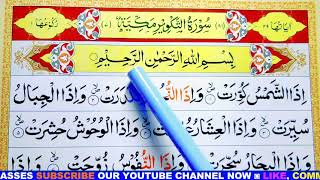 اٰیاتها ٢٩ سُوْرَةُ التَّكْوِيْرِ مَكِّيَّةٌ رکوعها
بِسْمِ اللهِ الرَّحْمٰنِ الرَّحِيْمِ
اِذَا الشَّمْسُ كُوِّرَتْ وَاِذَا وَاِذَا الْجِبَالُ
سُيِّرَتْ وَاِذَا الْعِشَارُ وَاِذَا الْوُحُوْشُ حُشِرَتْ
وَاِذَا الْبِحَارُ سُجِّرَتْ وَاِذَا النُّفُوْسُ زُوِّجَتْ وَاِذَا
ASSES SUBSCRIBE OUR YOUTUBE CHANNEL NOW LIKE, COMM